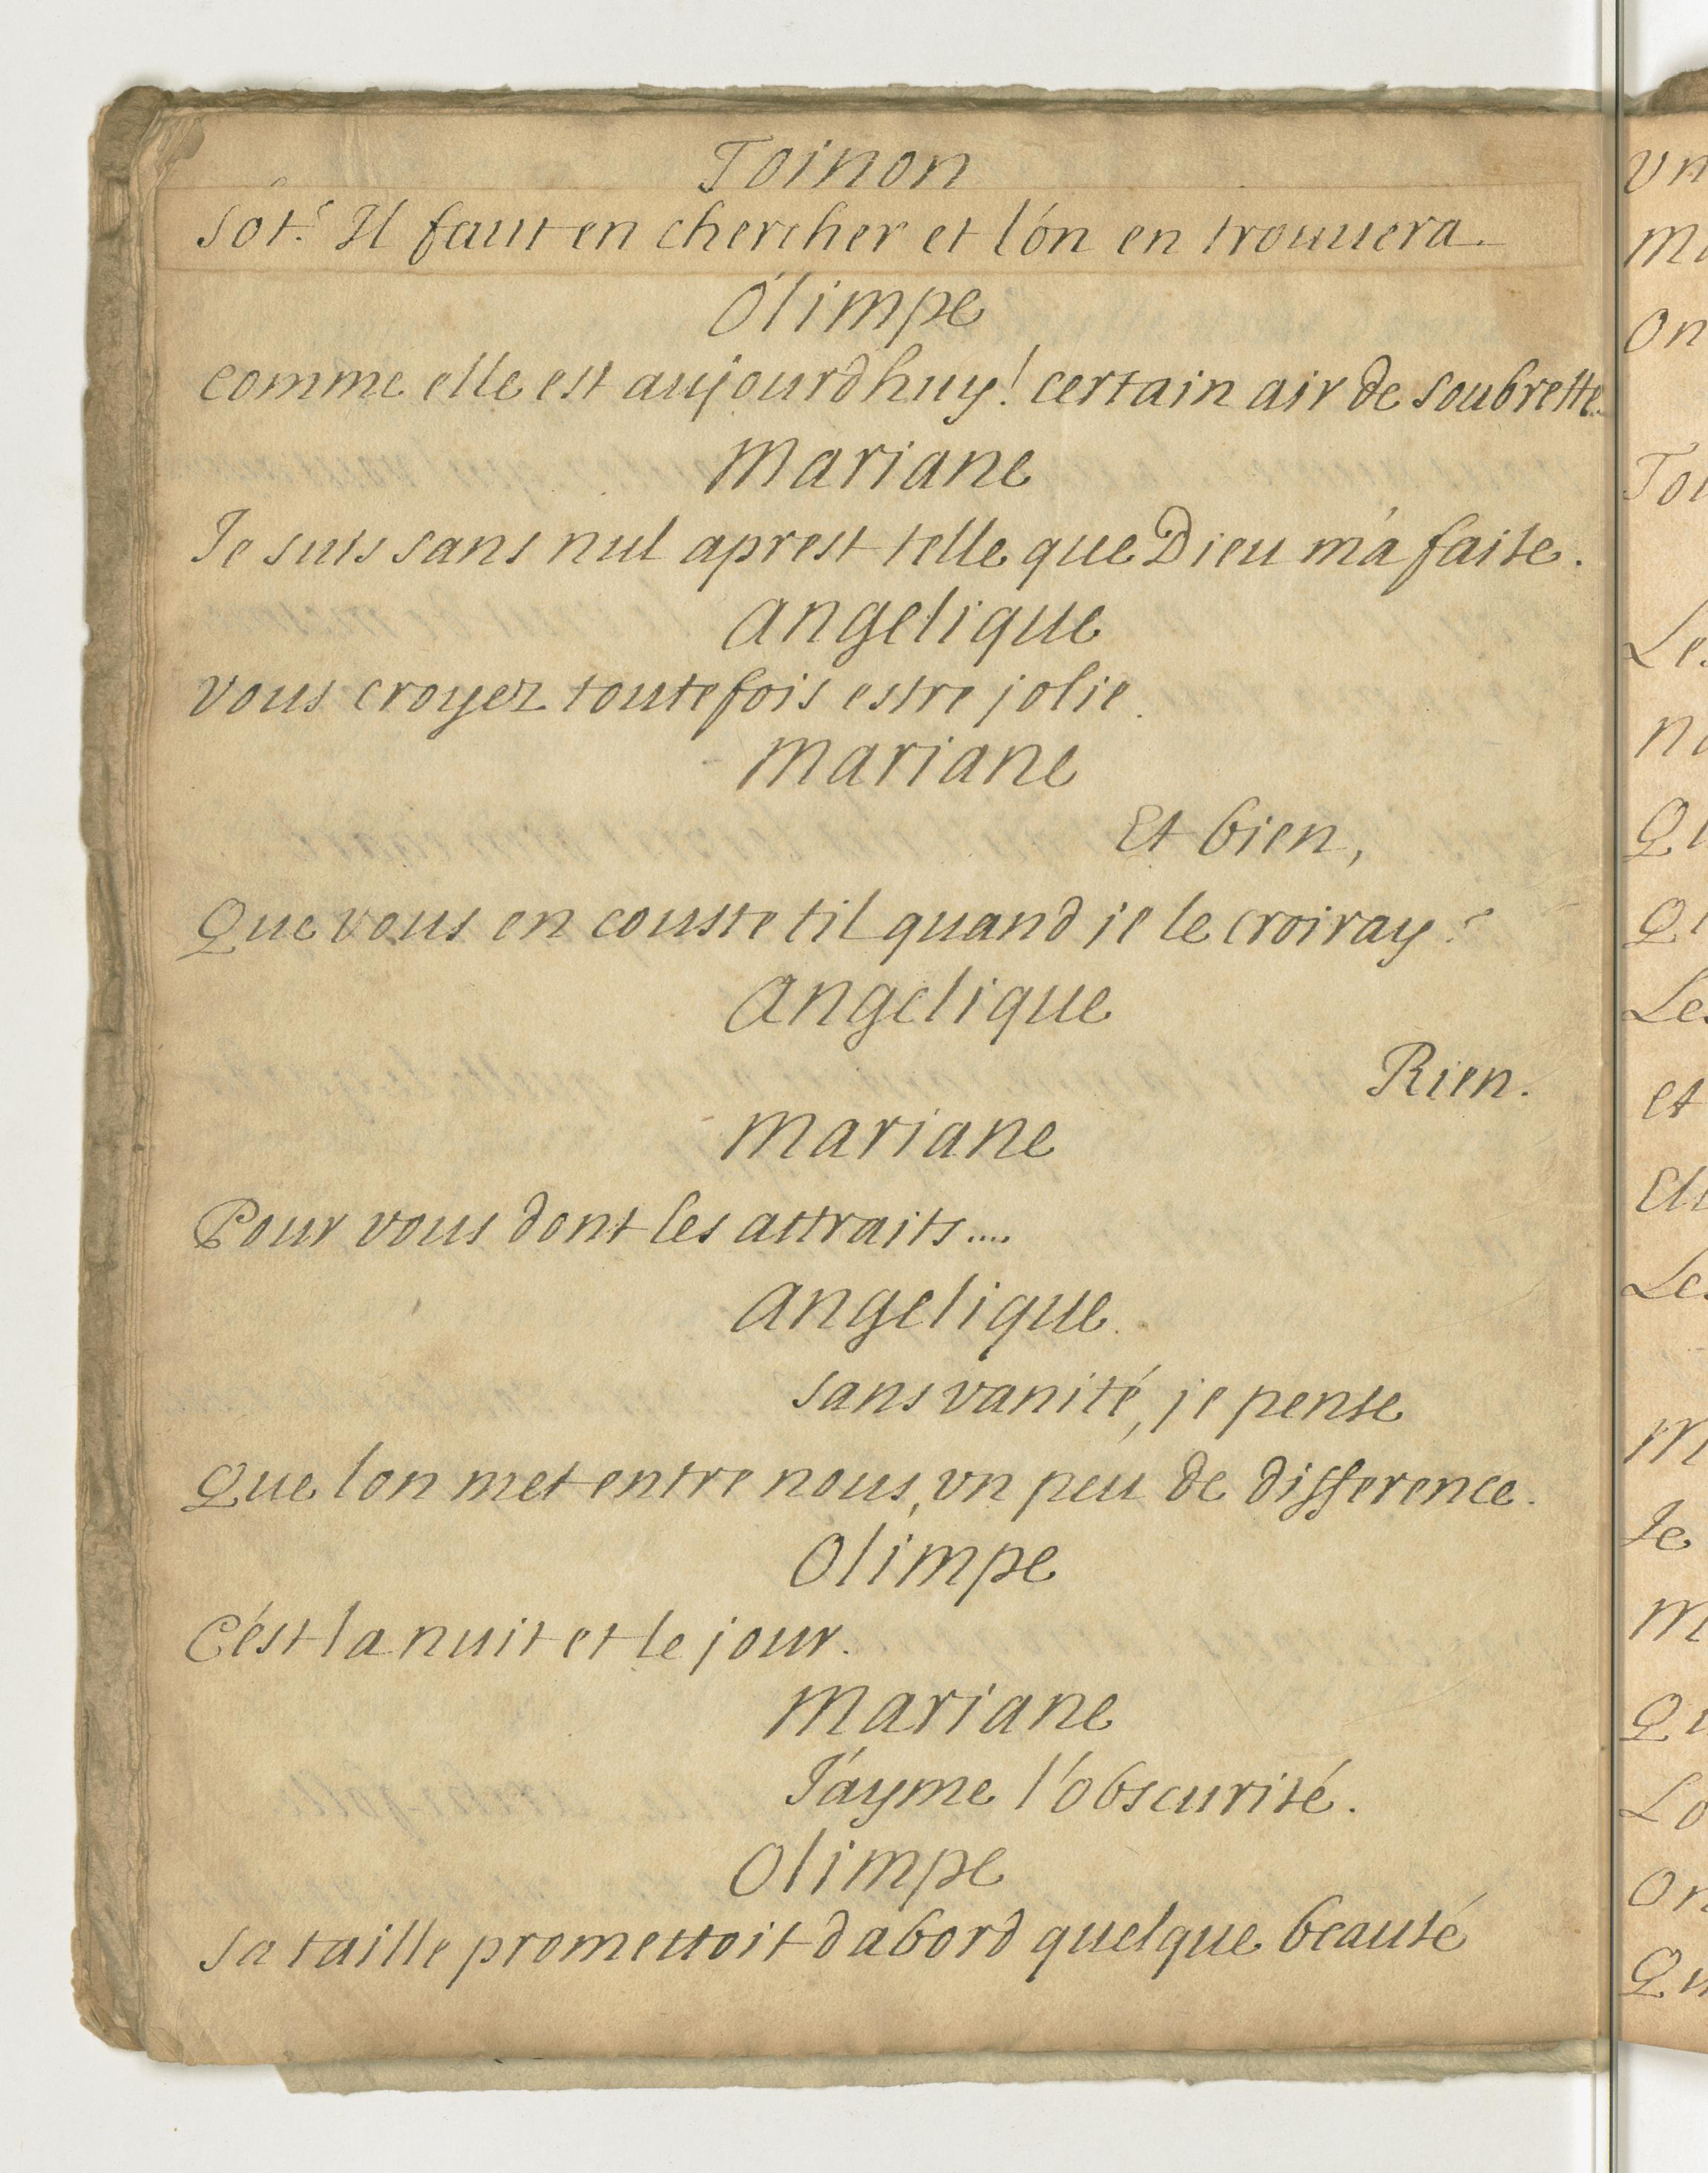 Toinon
sot? Il faut en chercher et l'on en trouuera.
Olimpe
comme elle est aujourdhuy! certain air de soubrette.
Mariane
Je suis sans nul aprest telle que Dieu m'a faite.
Angelique
vous croyez toutefois estre jolie.
Mariane
Et bien,
Que vous en couste til quand je le croiray?
Angelique
Rien.
Mariane
Pour vous dont les attraits....
Angelique.
sans vanité, je pense
Que lon met entre nous, vn peu de difference.
Olimpe
C'est la nuit et le jour.
Mariane
J'ayme l'obscurité.
Olimpe
sa taille promettoit dabord quelque beauté